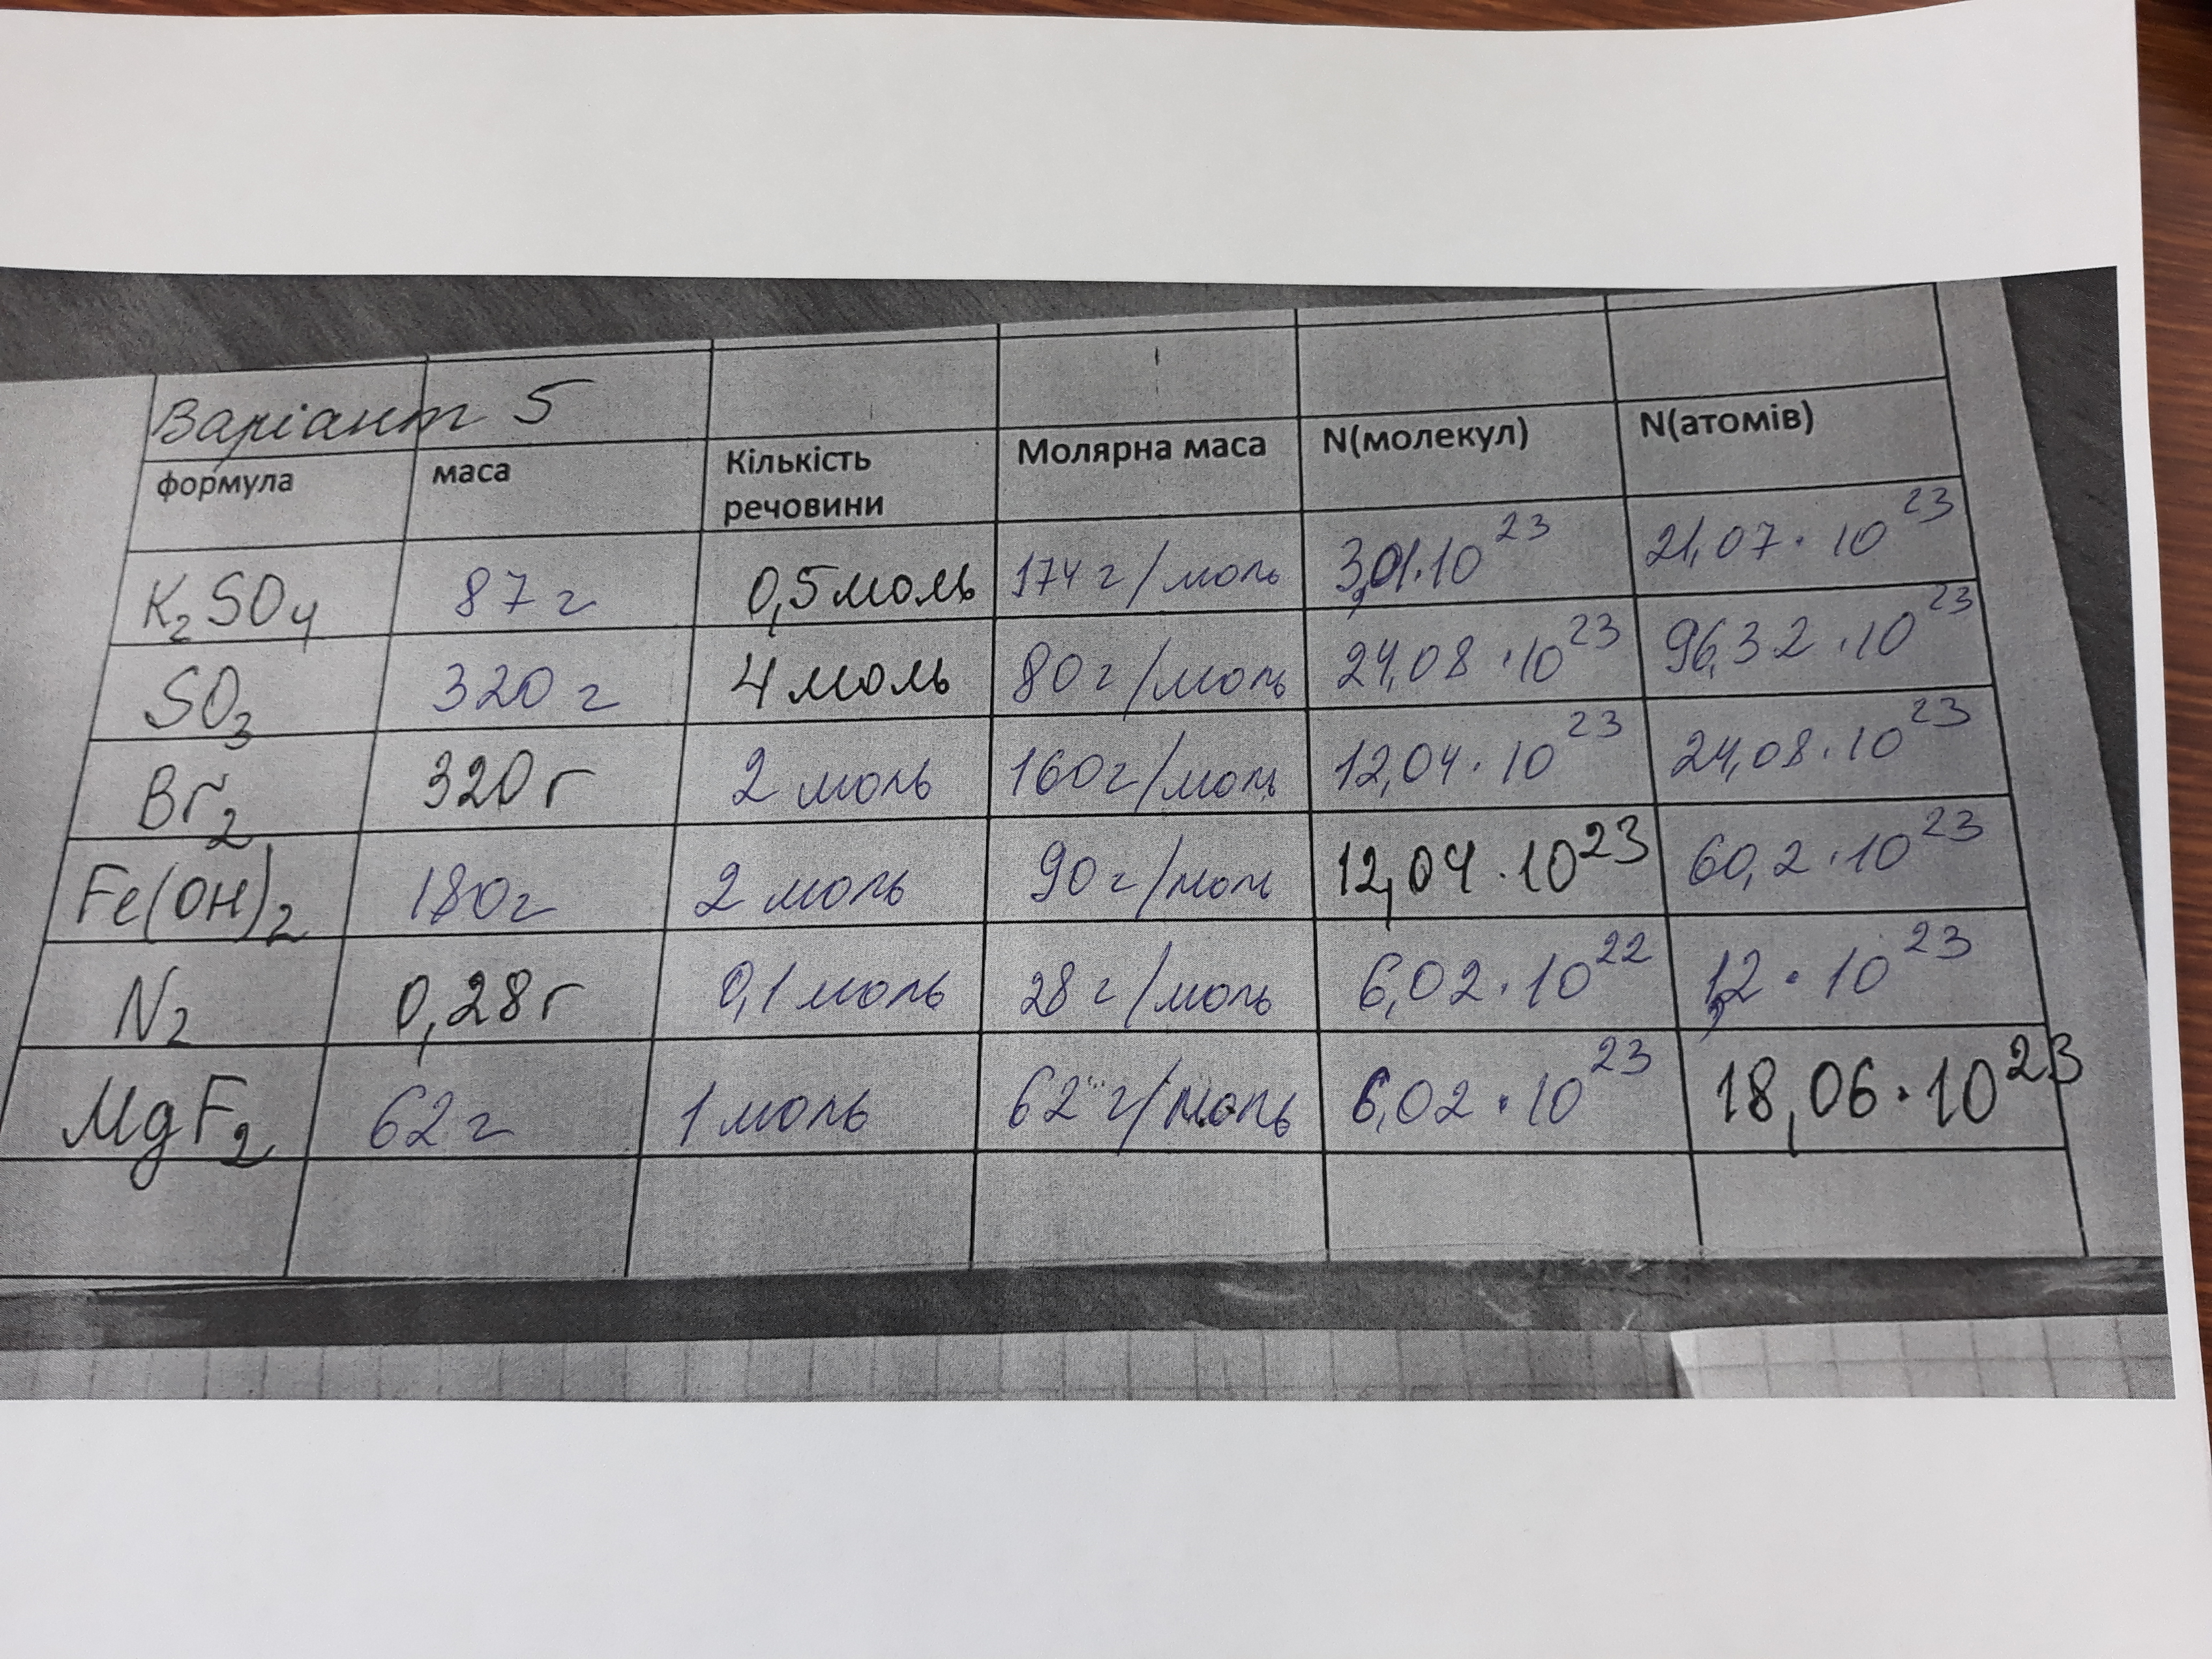 Варіант 5
формула маса Кількість речовини Молярна маса N(молекул) N(атомів)
K₂SO₄ 87 г 0,5 моль 174 г/моль 3,01·10²³ 21,07·10²³
SO₃ 320 г 4 моль 80 г/моль 24,08·10²³ 96,32·10²³
Br₂ 320 г 2 моль 160 г/моль 12,04·10²³ 24,08·10²³
Fe(OH)₂ 180 г 2 моль 90 г/моль 12,04·10²³ 60,2·10²³
N₂ 0,28 г 0,1 моль 28 г/моль 6,02·10²² 1,2·10²³
MgF₂ 62 г 1 моль 62 г/моль 6,02·10²³ 18,06·10²³